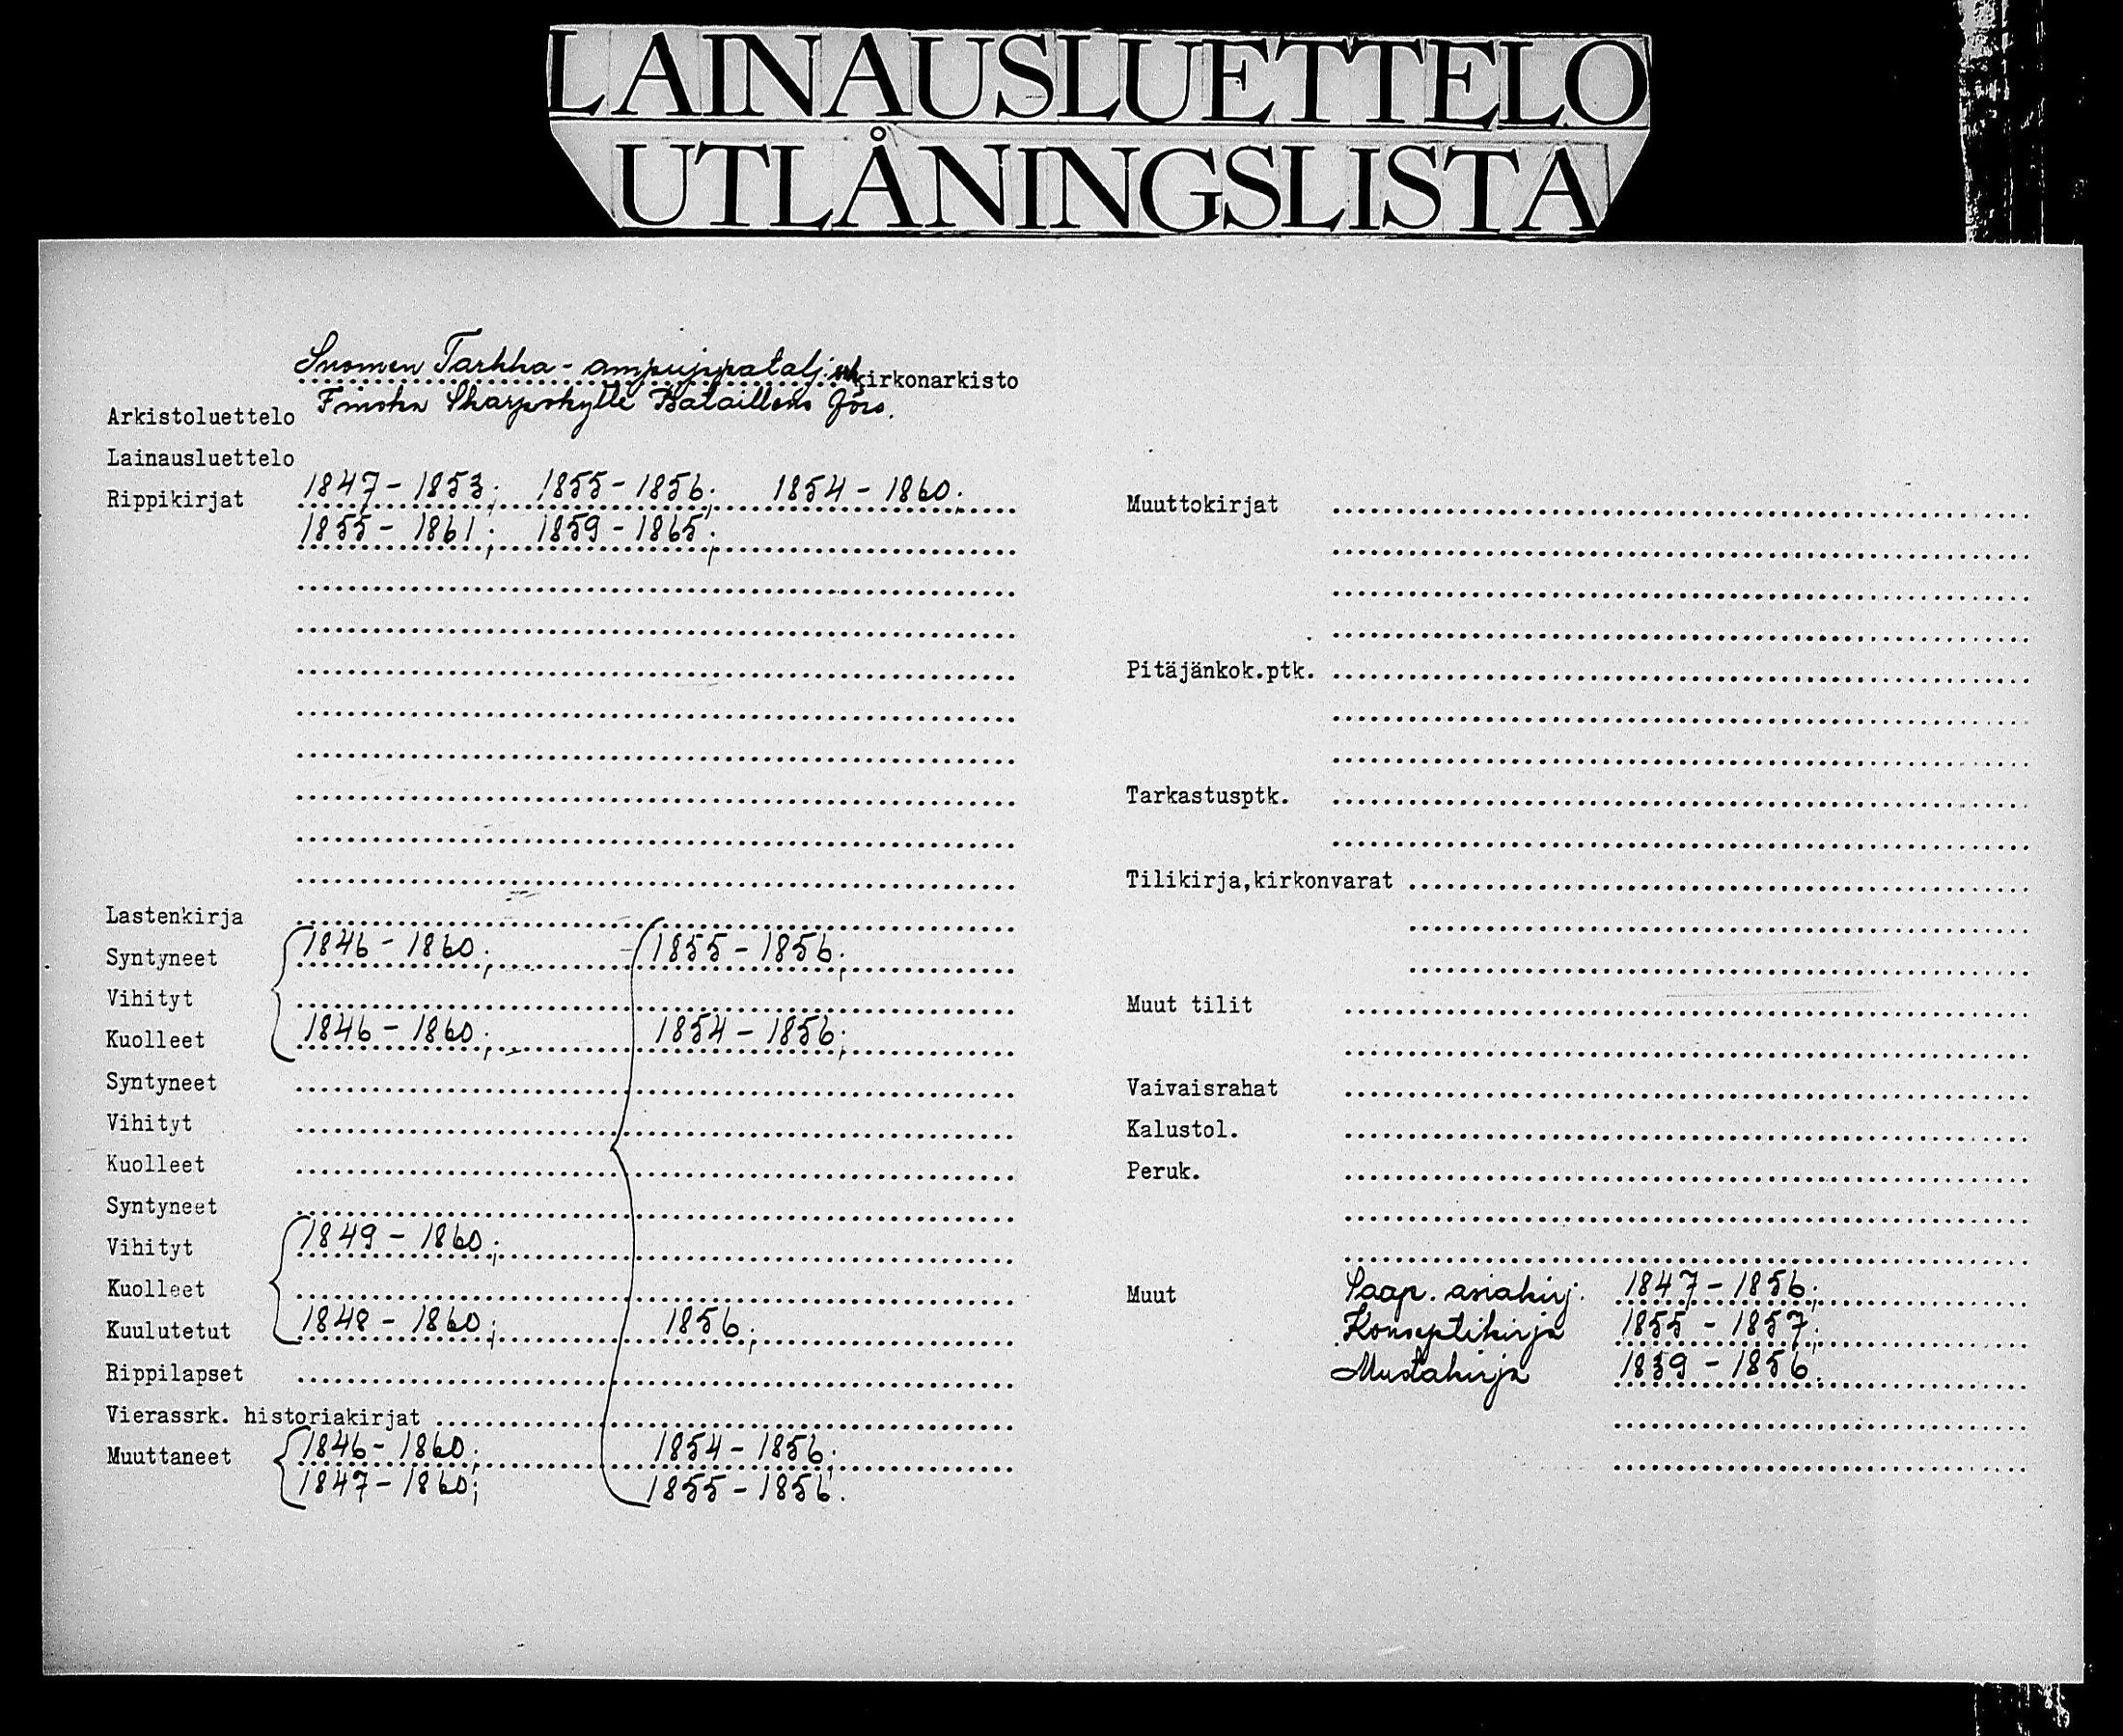 LAINAUSLUETTELO
UTLÅNINGSLISTA
Suomen Tarkka-ampujapatalj. kirkonarkisto
Arkistoluettelo Finska Skarpskytte Bataillons förs.
Lainausluettelo
Rippikirjat 1847-1853; 1855-1856; 1854-1860;
1855-1861; 1859-1865;
Lastenkirja
Syntyneet 1846-1860; 1855-1856;
Vihityt
Kuolleet 1846-1860; 1854-1856;
Syntyneet
Vihityt
Kuolleet
Syntyneet
Vihityt 1849-1860;
Kuolleet
Kuulutetut 1848-1860; 1856;
Rippilapset
Vierassrk. historiakirjat
Muuttaneet 1846-1860; 1854-1856;
1847-1860; 1855-1856.
Muuttokirjat
Pitäjänkok.ptk.
Tarkastusptk.
Tilikirja,kirkonvarat
Muut tilit
Vaivaisrahat
Kalustol.
Peruk.
Muut Saap. asiakirj. 1847-1856;
Konseptikirja 1855-1857;
Mustakirja 1839-1856.